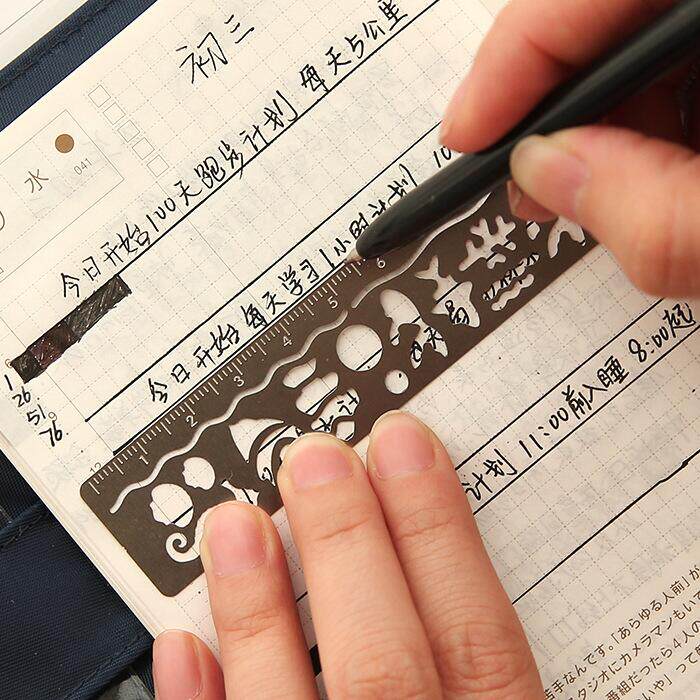 初三
水
041
今日开始100天跑步计划 每天5公里
今日开始每天学习1小时计划 10
1
26
51
76
1 2 3 4 5 6
计划 11:00前入睡 8:00起
手なんです。「あらゆる人前」が
タジオにカメラマンもいて
番組だったら4人の